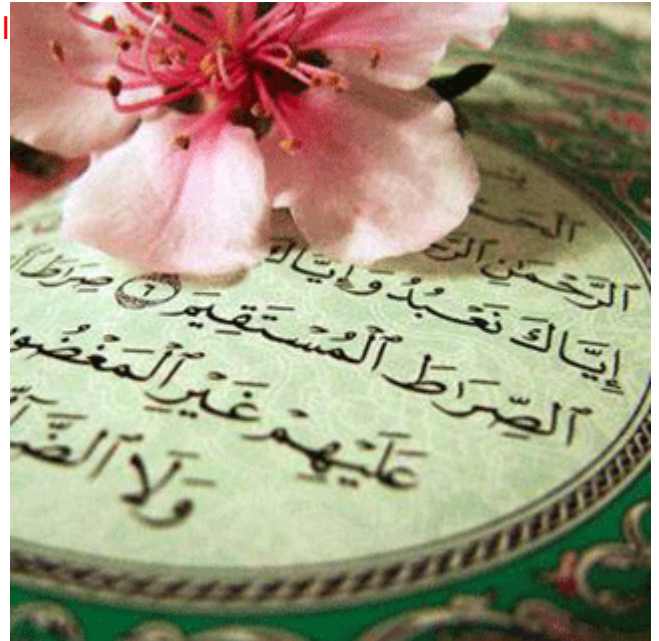 الرَّحْمَٰنِ
إِيَّاكَ نَعْبُدُ وَإِيَّاكَ
ٱلصِّرَٰطَ ٱلْمُسْتَقِيمَ ٦ صِرَٰطَ
عَلَيْهِمْ غَيْرِ ٱلْمَغْضُو
وَلَا ٱلضَّا